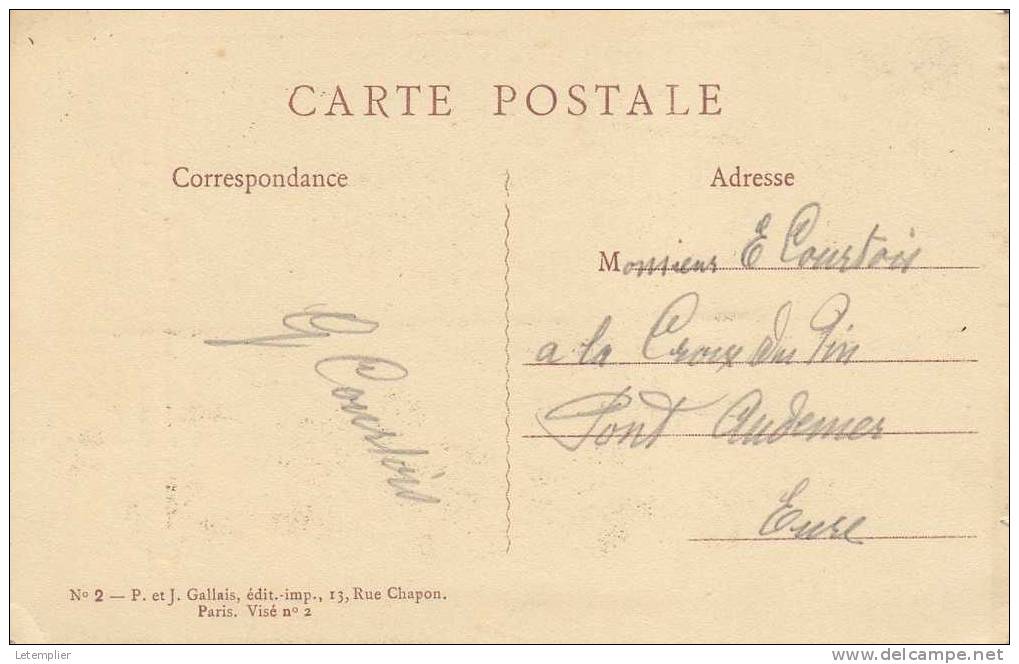 CARTE POSTALE
Correspondance
Adresse
Monsieur E Courtois
a la Croix du Pin
Pont Audemer
Eure
G Courtois
No 2 — P. et J. Gallais, édit.-imp., 13, Rue Chapon.
Paris. Visé no 2
Letemplier
www.delcampe.net